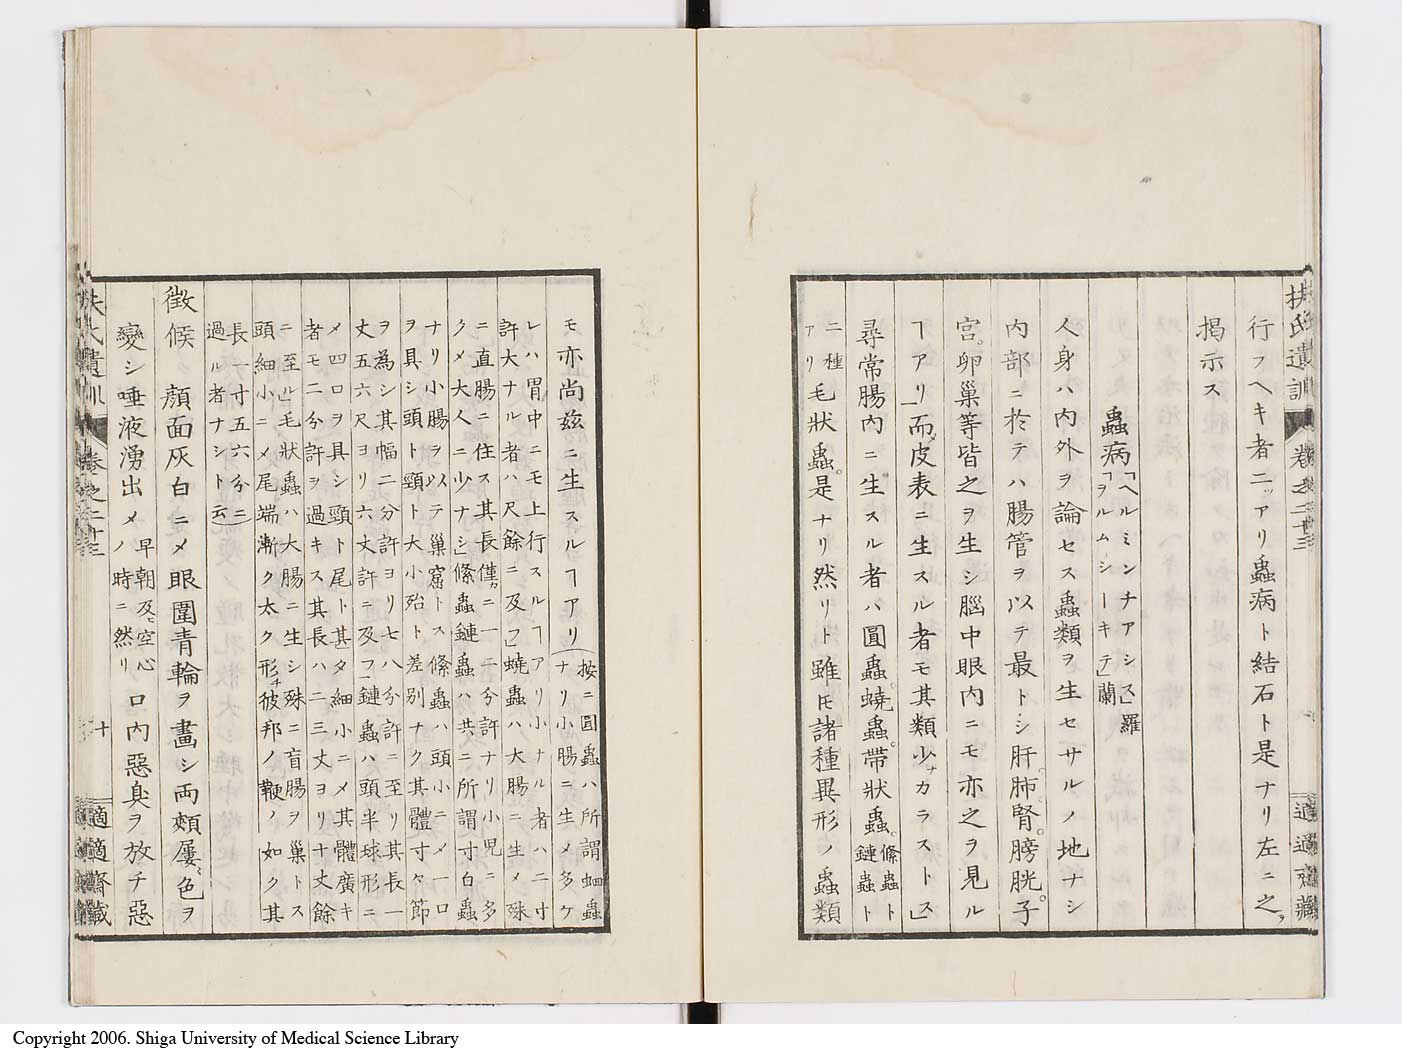 扶氏遺訓 卷之二十三
適適齋藏
行フヘキ者二ツアリ蟲病ト結石ト是ナリ左ニ之ヲ
掲示ス
蟲病「ヘルミンチアシス」羅
「ヲルムシーキテ」蘭
人身ハ内外ヲ論セス蟲類ヲ生セサルノ地ナシ
内部ニ於テハ腸管ヲ以テ最トシ肝。肺。腎。膀胱。子
宮。卵巢等皆之ヲ生シ腦中眼内ニモ亦之ヲ見ル
ヿアリ「而メ皮表ニ生スル者モ其類少ナカラスト ス」
尋常腸内ニ生スル者ハ圓蟲。蟯蟲。帶狀蟲。條蟲ト
鏈蟲ト
二種
アリ
毛狀蟲。是ナリ然リト雖𪜈諸種異形ノ蟲類
モ亦尚茲ニ生スルヿアリ(按ニ圓蟲ハ所謂蛔蟲
ナリ小腸ニ生メ多ケ
レハ胃中ニモ上行スルヿアリ小ナル者ハ二寸
許大ナル者ハ尺餘ニ及フ」蟯蟲ハ大腸ニ生メ殊
ニ直腸ニ住ス其長僅カニ一二分許ナリ小兒ニ多
クメ大人ニ少ナシ」條蟲鏈蟲ハ共ニ所謂寸白蟲
ナリ小腸ヲ以テ巢窟トス條蟲ハ頭小ニメ一口
ヲ具シ頭ト頸ト大小殆ト差別ナク其體寸々節
ヲ為シ其幅二分許ヨリ七八分許ニ至リ其長一
丈五六尺ヨリ六丈許ニ及フ」鏈蟲ハ頭半球形ニ
メ四口ヲ具シ頸ト尾ト甚タ細小ニメ其體廣キ
者モ二分許ヲ過キス其長ハ二三丈ヨリ十丈餘
ニ至ル」毛狀蟲ハ大腸ニ生シ殊ニ盲腸ヲ巢トス
頭細小ニメ尾端漸ク太ク形チ彼邦ノ鞭ノ如ク其
長一寸五六分ニ
過ル者ナシト云)
徵候 顏面灰白ニメ眼圍青輪ヲ畫シ両頰屢〻色ヲ
變シ唾液湧出メ早朝及ヒ空心
ノ時ニ然リ
口内惡臭ヲ放チ惡
扶氏遺訓 卷之二十三
十
適適齋藏
Copyright 2006. Shiga University of Medical Science Library